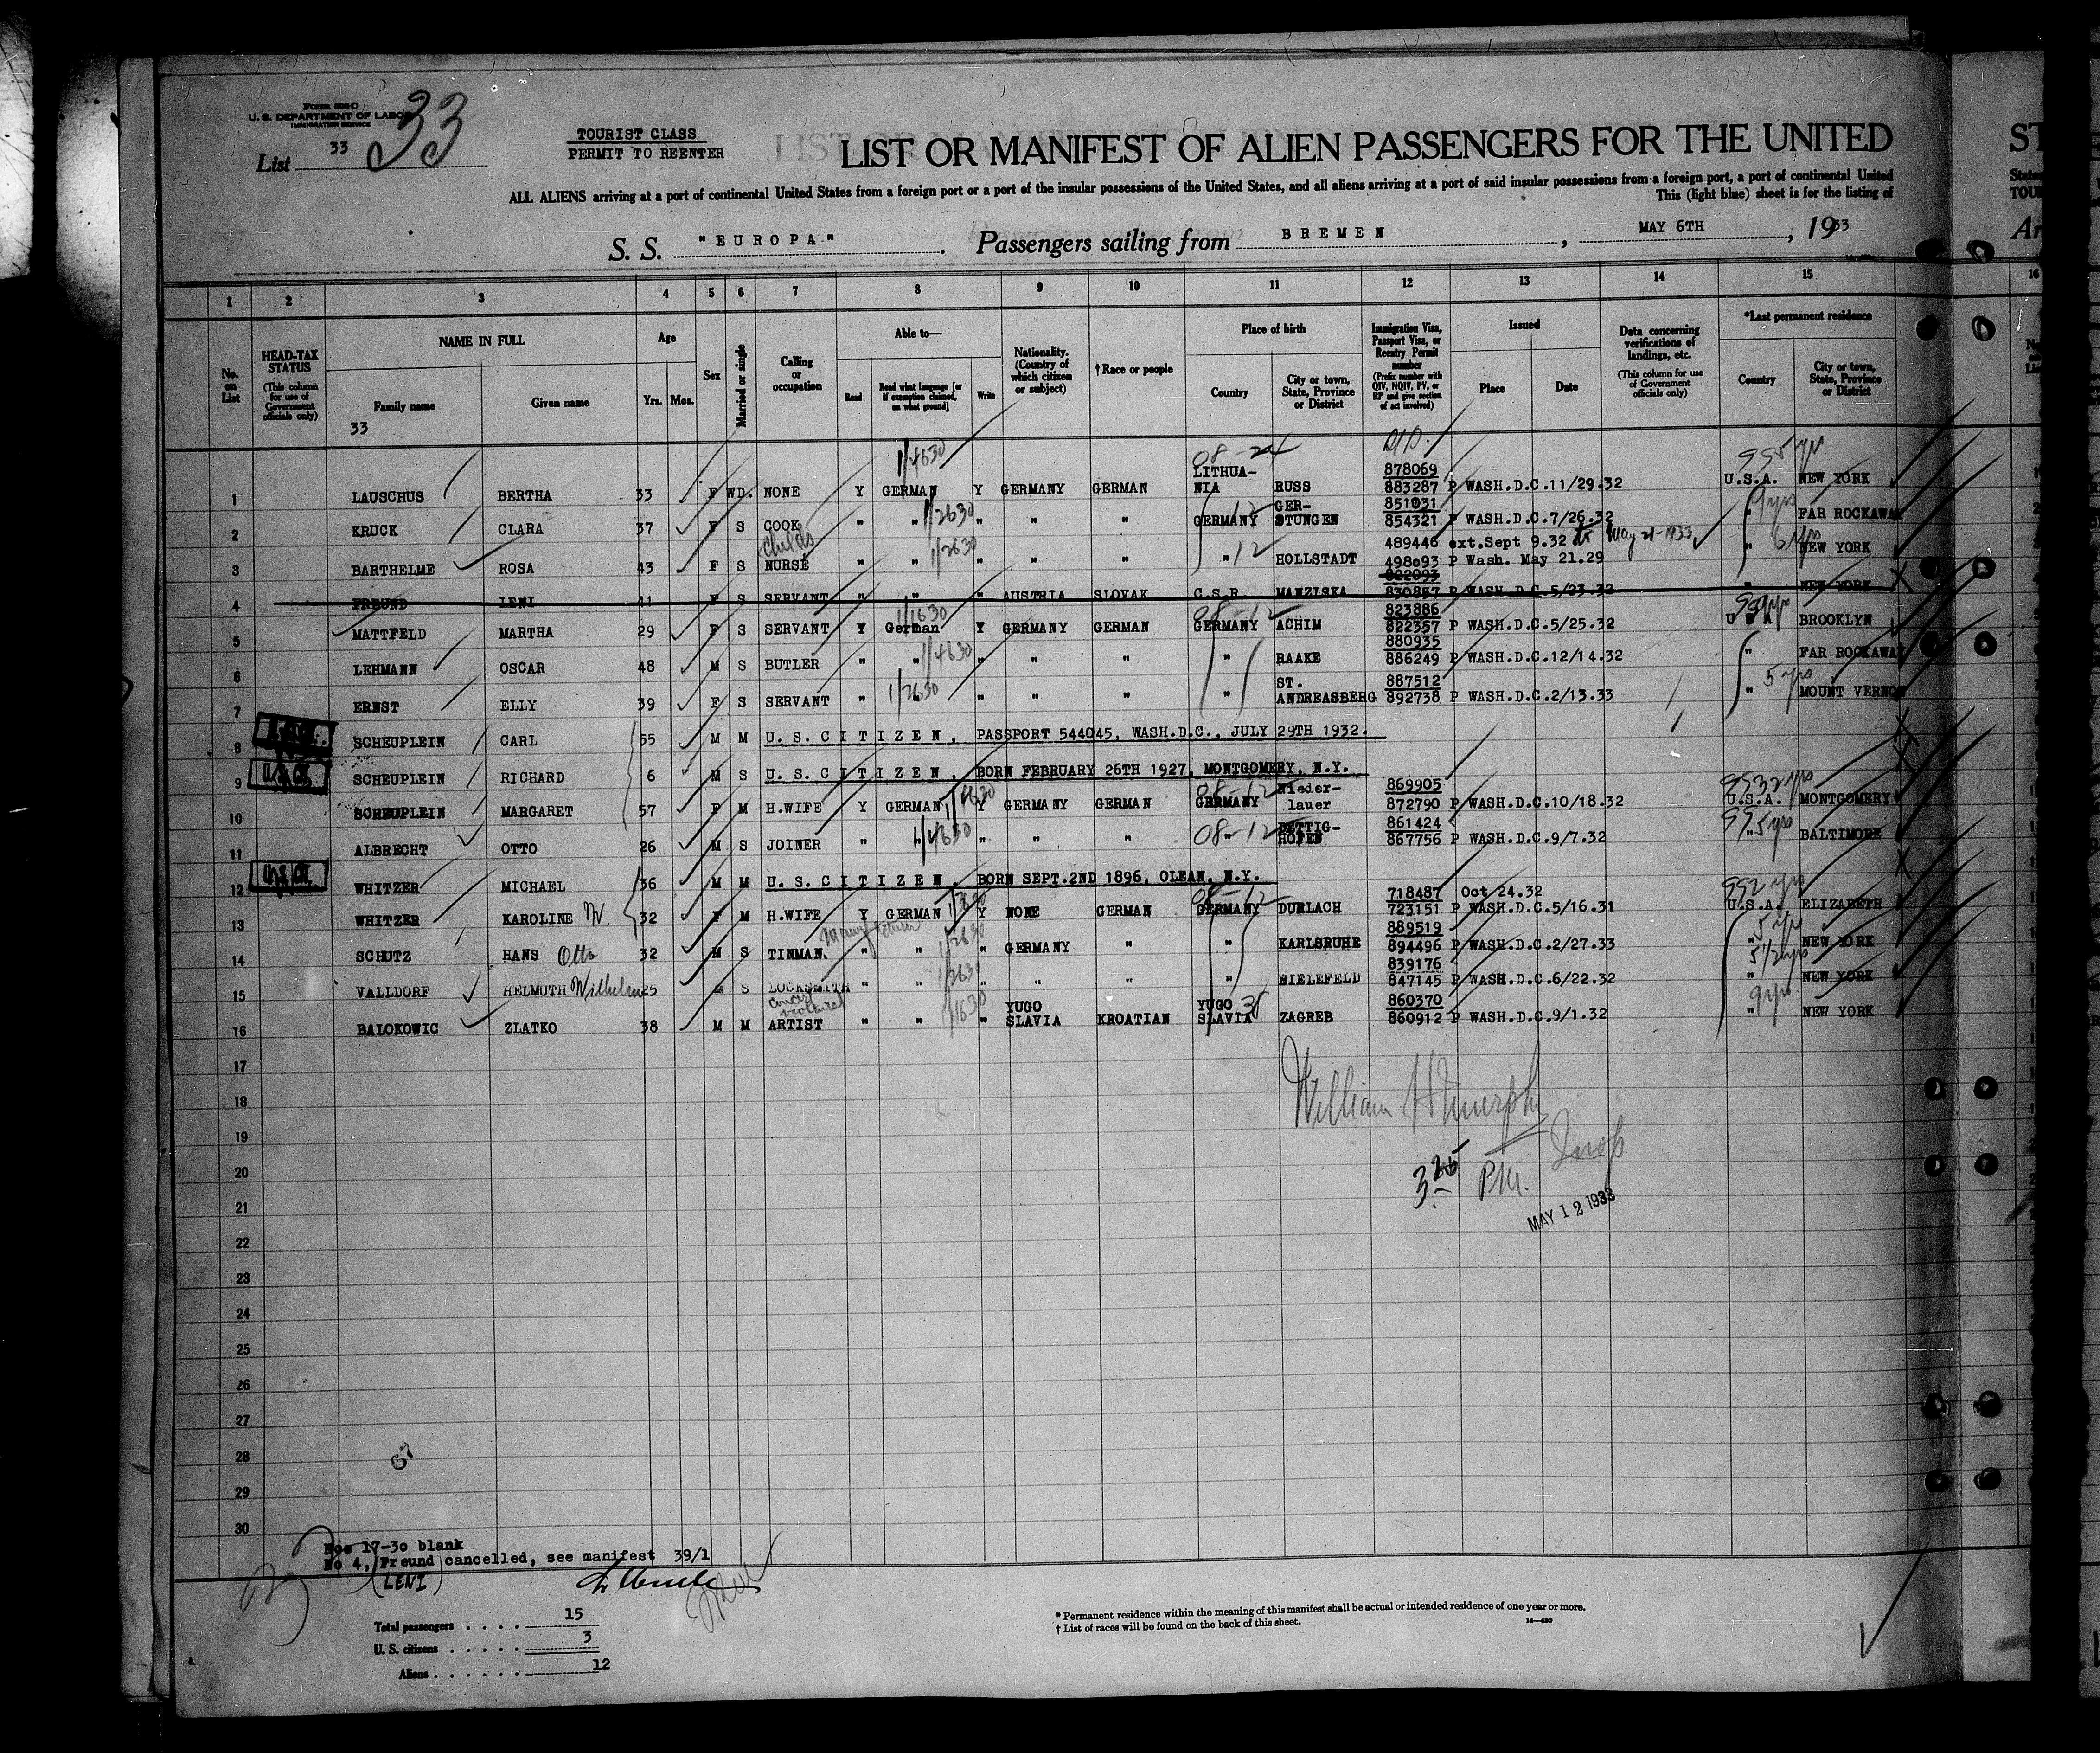 Form 500 C
U. S. DEPARTMENT OF LABOR
IMMIGRATION SERVICE
List 33 33
TOURIST CLASS
PERMIT TO REENTER
LIST OR MANIFEST OF ALIEN PASSENGERS FOR THE UNITED
ST
ALL ALIENS arriving at a port of continental United States from a foreign port or a port of the insular possessions of the United States, and all aliens arriving at a port of said insular possessions from a foreign port, a port of continental United
This (light blue) sheet is for the listing of
S. S. "EUROPA". Passengers sailing from BREMEN, MAY 6TH, 1933
1 2 3 4 5 6 7 8 9 10 11 12 13 14 15 16
No. on List
HEAD-TAX STATUS (This column for use of Government officials only)
NAME IN FULL
Family name Given name
33
Age
Yrs. Mos.
Sex
Married or single
Calling or occupation
Able to—
Read Read what language [or if exemption claimed, on what ground] Write
Nationality. (Country of which citizen or subject)
†Race or people
Place of birth
Country City or town, State, Province or District
Immigration Visa, Passport Visa, or Reentry Permit number (Prefix number with QIV, NQIV, PV, or RP and give section of act involved)
Issued
Place Date
Data concerning verifications of landings, etc. (This column for use of Government officials only)
*Last permanent residence
Country City or town, State, Province or District
1 LAUSCHUS BERTHA 33 F WD. NONE Y GERMAN Y GERMANY GERMAN LITHUA-NIA RUSS 878069 883287 P WASH.D.C.11/29.32 U.S.A. NEW YORK
2 KRUCK CLARA 37 F S COOK " " " " " GERMANY GER-STUNGEN 851031 854321 P WASH.D.C.7/26.32 " 9yrs FAR ROCKAWAY
3 BARTHELME ROSA 43 F S Child's NURSE " " " " " " HOLLSTADT 489446 ext.Sept 9.32 to May 21-1933 498093 P Wash. May 21.29 " 6 yrs NEW YORK
4 FREUND LENI 41 F S SERVANT " " " AUSTRIA SLOVAK C.S.R. MANZISKA 822093 830857 P WASH.D.C.5/23.32 " NEW YORK
5 MATTFELD MARTHA 29 F S SERVANT Y German Y GERMANY GERMAN GERMANY ACHIM 823886 822357 P WASH.D.C.5/25.32 U S A BROOKLYN
6 LEHMANN OSCAR 48 M S BUTLER " " " " " " RAAKE 880935 886249 P WASH.D.C.12/14.32 " FAR ROCKAWAY
7 ERNST ELLY 39 F S SERVANT " " " " " " ST. ANDREASBERG 887512 892738 P WASH.D.C.2/13.33 " 5 yrs MOUNT VERNON
8 SCHEUPLEIN CARL 55 M M U.S.CITIZEN, PASSPORT 544045, WASH.D.C., JULY 29TH 1932.
9 SCHEUPLEIN RICHARD 6 M S U.S.CITIZEN, BORN FEBRUARY 26TH 1927, MONTGOMERY, N.Y.
10 SCHEUPLEIN MARGARET 57 F M H.WIFE Y GERMAN Y GERMANY GERMAN GERMANY Nieder-lauer 869905 872790 P WASH.D.C.10/18.32 U.S.A. MONTGOMERY
11 ALBRECHT OTTO 26 M S JOINER " " " " " 08-12 DETTIG-HOFEN 861424 867756 P WASH.D.C.9/7.32 " BALTIMORE
12 WHITZER MICHAEL 36 M M U.S.CITIZEN, BORN SEPT.2ND 1896, OLEAN, N.Y.
13 WHITZER KAROLINE W. 32 F M H.WIFE Y GERMAN Y NONE GERMAN GERMANY DURLACH 718487 Oct 24.32 723151 P WASH.D.C.5/16.31 U.S.A. ELIZABETH
14 SCHUTZ HANS Otto 32 M S TINMAN. " " " GERMANY " " KARLSRUHE 889519 894496 P WASH.D.C.2/27.33 " 5 yrs NEW YORK
15 VALLDORF HELMUTH Wilhelm 25 M S LOCKSMITH " " " " " " BIELEFELD 839176 847145 P WASH.D.C.6/22.32 " 5 1/2 yrs NEW YORK
16 BALOKOWIC ZLATKO 38 M M ARTIST " " " YUGO SLAVIA KROATIAN YUGO SLAVIA ZAGREB 860370 860912 P WASH.D.C.9/1.32 " 9yrs NEW YORK
17
18
19
20
21
22
23
24
25
26
27
28
29
30
William H Murphy
Insp
3 25 P.M.
MAY 12 1933
Nos 17-30 blank
No 4, Freund cancelled, see manifest 39/1
(LENI)
Total passengers . . . . 15
U. S. citizens . . . . . 3
Aliens . . . . . . 12
* Permanent residence within the meaning of this manifest shall be actual or intended residence of one year or more.
† List of races will be found on the back of this sheet.
14—430